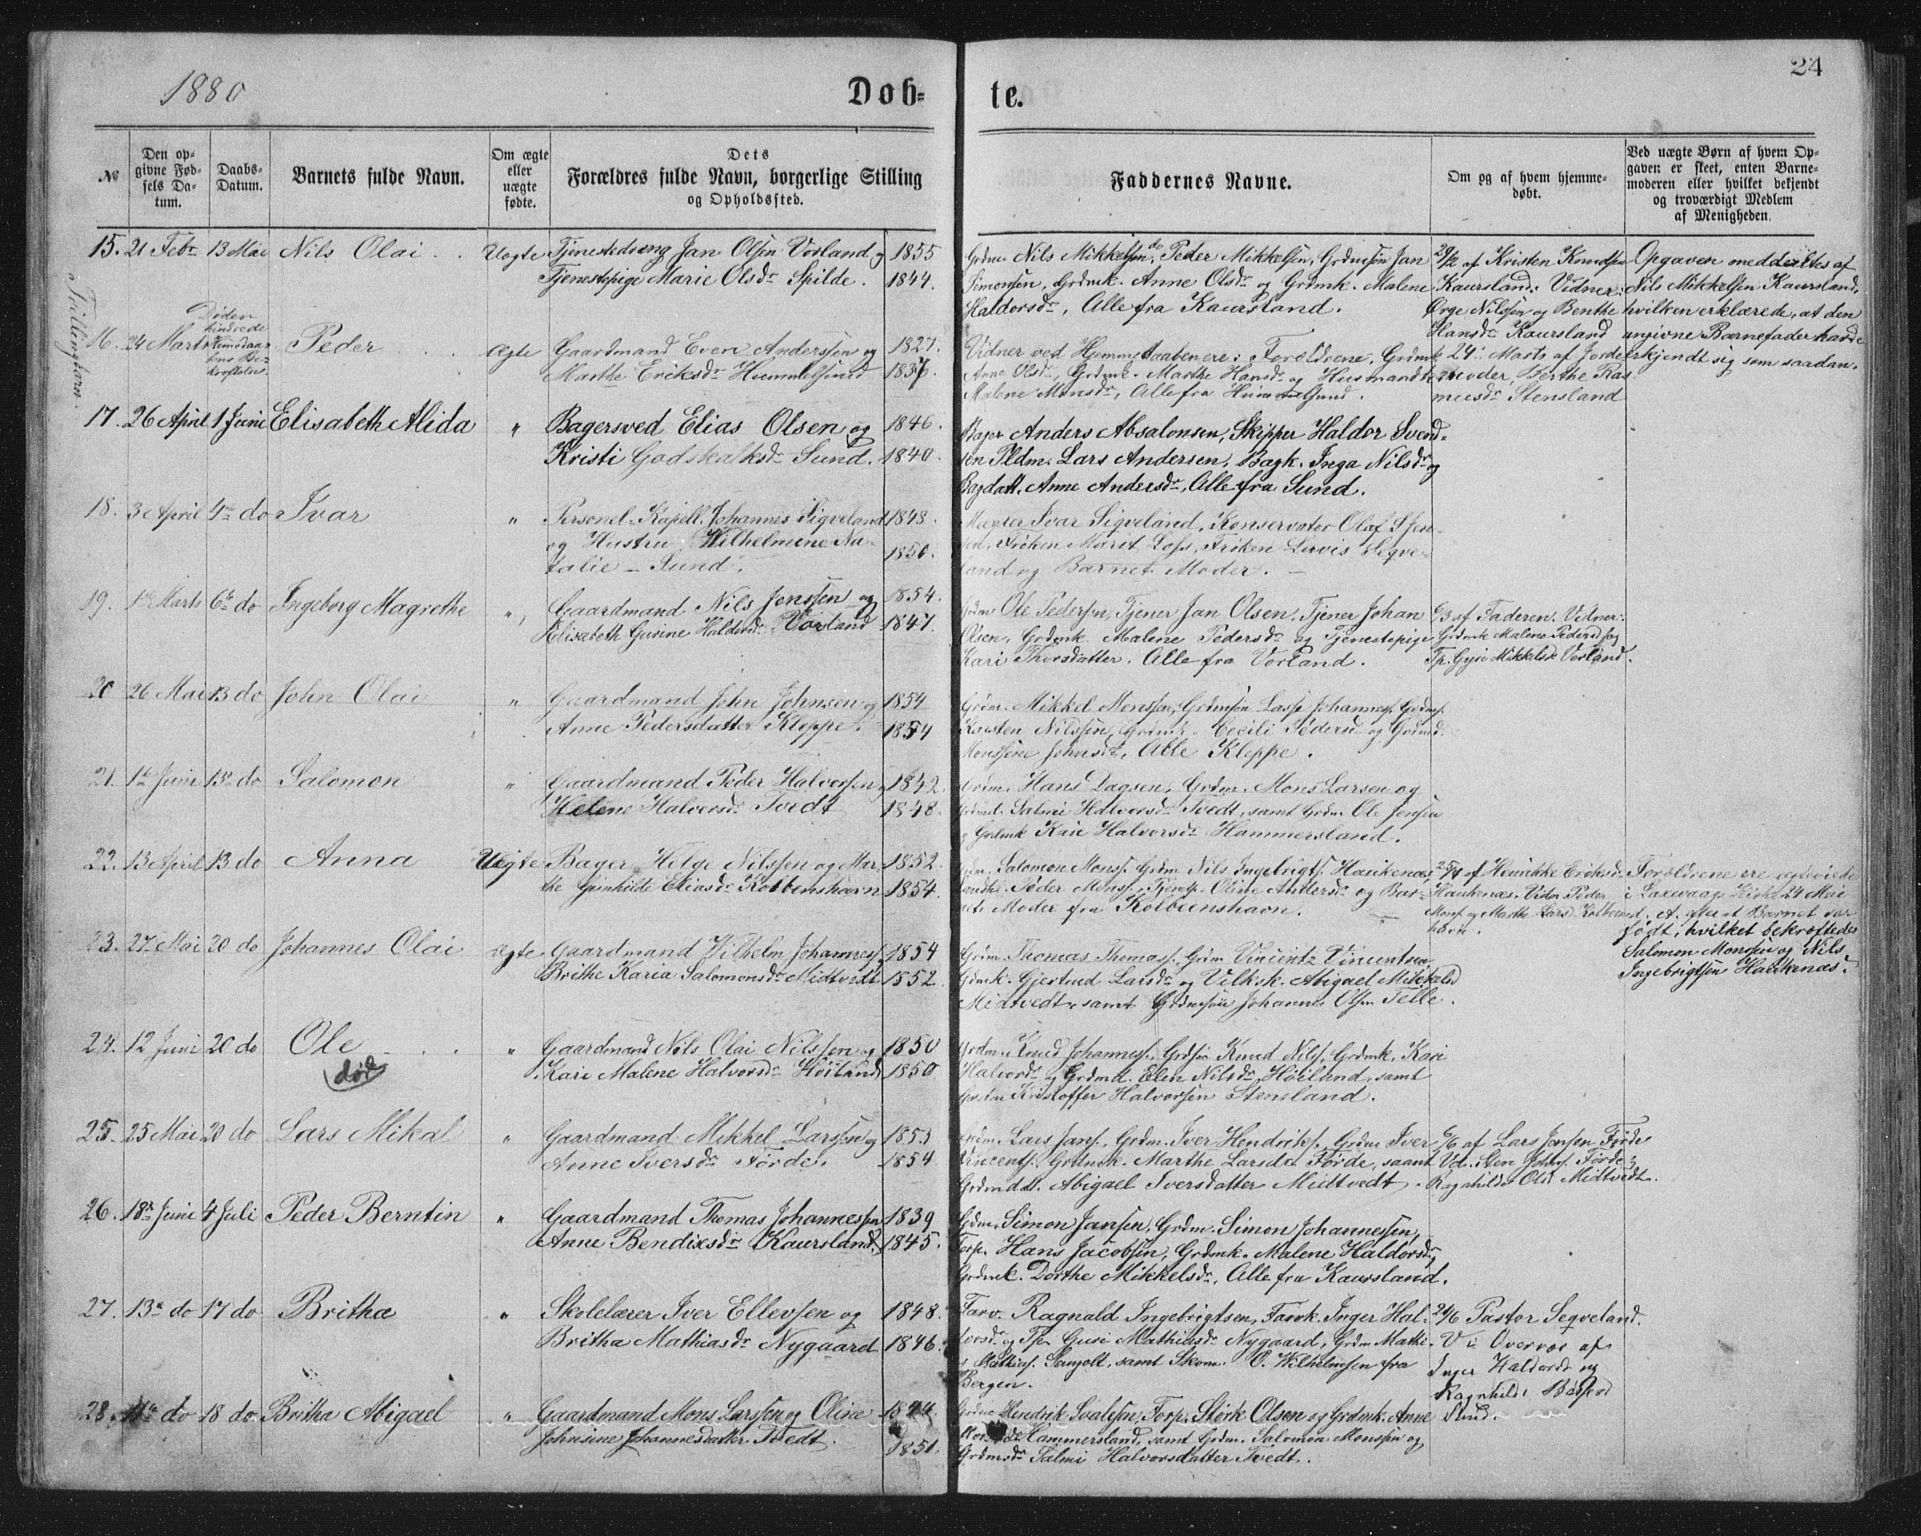 1880
Døb-
te.
24
№
Den op-
givne Fød-
sels Da-
tum.
Daabs-
Datum.
Barnets fulde Navn.
Om ægte
eller
uægte
fødte.
Dets
Forældres fulde Navn, borgerlige Stilling
og Opholdssted.
Faddernes Navne.
Om og af hvem hjemme-
døbt.
Ved uægte Børn af hvem Op-
gaven er skeet, enten Barne-
moderen eller hvilket bekjendt
og troværdigt Medlem
af Menigheden.
15. 21 Febr 13 Mai Nils Olai Uegte Tjenestedreng Jan Olsen Vorland og 1855
Tjenestepige Marie Olsdr Spilde. 1844.
Grdm Nils Mikkelsen, do Peder Mikkelsen, Grdmsøn Jan
Simonsen, Grdmk. Anne Olsdr og Grdmk. Malene
Haldorsdr, Alle fra Kaursland.
29/2 af Kristen Knudsen
Kaursland: Vidner:
Ørge Nilssen og Benthe
Hansdr Kaursland
Opgaven meddeltes af
Nils Mikkelsen Kaursland,
hvilken erklærede, at den
angivne Barnefader havde
erkjendt sig som saadan.
Tillingbarn.
16. 24 Marts Døden
hindrede
Hjemdaa-
bens Be-
kræftelse.
Peder Ægte Gaardmand Even Anderssen og 1827.
Marthe Eriksdr Hummelsund 1837.
Vidner ved Hjemmedaaben ere: Foreldrene, Grdmk
Anne Olsdr, Grdmk. Marthe Hansdr og Husmandk
Malene Monsdr, Alle fra Hummelsund.
24 Marts af Jorde-
moder, Berthe Ras
musdr Stensland
17. 26 April 1 Juni Elisabeth Alida " Bagersved Elias Olsen og 1846.
Kristi Godskalksdr Sund. 1840.
Bager Anders Absalonsen, Skipper Haldor Svend-
sen Pldm. Lars Andersen, Bagk. Inga Nilsdr og
Bagdatt. Anne Andersdr, Alle fra Sund.
18. 3 April 4de do Ivar " Personel Kapell. Johannes Sigveland 1848.
og Hustru Wilhelmine Na- 1850.
talie - Sund.
Ivar Sigveland, Konservator Olaf
Frøken Marit Frøken Lovis Sigve-
land og Barnet Moder. -
19. Marts 6te do Ingeborg Magrethe " Gaardmand Nils Jenssen og 1854.
Elisabeth Gurine Haldorsdr Vorland 1847.
Grdm Ole Pedersen, Tjener Jan Olsen, Tjener Johan
Olsen, Grdmk. Malene Pedersdr og Tjenestepige
Kari Thorsdatter. Alle fra Vorland.
6/3 af Faderen. Vidner:
Grdmk Malene Pedersd og
Tp. Gyri Mikkelsdr Vorland.
20 26 Mai 13 do John Olai " Gaardmand John Johnsen og 1854
Anne Pedersdatter Kleppe. 1854
Grdm. Mikkel Monssen, Grdmsøn Lasse Johannes. Grdms.
Karsten Nilssen, Grdmk. Cecili Pedersd og Grdmd.
Monssine Johnsdr, Alle Kleppe.
21. 1te Juni 13de do Salomon " Gaardmand Peder Halvorssen og 1842.
Helene Halvorsdr Tvedt 1848.
Grdm. Hans Dagsen, Grdm. Mons Larsen og
Grdmd. Salmi Halvorsdr Tvedt, samt Grdm. Ole Jensen
og Grdmk Kari Halvorsdr Hammersland.
22. 13 April 13 do Anna Uegte Bager Helge Nilssen og Mar- 1852.
the Gunhilde Eliasdr Kolbenshavn 1854.
Grdm. Salomon Monss. Grdm Nils Ingebrigts. Haukenæs,
Peder Monss, Tjenp. Oline Andersdr og Bar-
nets Moder fra Kolbeenshavn.
25/4 af Henrikke Eriksdr
Haukenæs. Vidn. Peder
Monss og Marthe Larsd. Kolbeens-
havn.
Foreldrene ere egteviede
i Kirke 24 Mai
d. A. efterat Barnet var
født, hvilket bekræftedes
Salomon Monssen og Nils
Ingebrigtsen Haukenæs.
23. 27 Mai 20 do Johannes Olai Ægte Gaardmand Wilhelm Johannes. 1854
Brithe Karia Salomonsdr Midtvedt 1852.
Grdm. Thomas Thomass. Grdm Vincentz Vincentsen
Grdmk. Gjertrud Larsdr og Abigael Mikkelsd
Midtvedt, samt Grdmsøn Johannes Olsen Telle.
24. 12 Juni 20 do Ole " Gaardmand Nils Olai Nilssen og 1850
død
Kari Malene Halvorsdr Høiland 1850
Grdm. Knud Johannes. Grdsøn Knud Nilss. Grdmk. Kari
Halvorsdr og Grdmd. Elen Nilsdr Høiland, samt
Grdm Kristoffer Halvorssen Stensland.
25. 25 Mai 20 do Lars Mikal " Gaardmand Mikkel Larssen og 1853
Anne Iversdr Førde. 1854.
Grdm. Lars Jans. Grdm. Iver Hendriks. Grdm Iver
Vincents. Grdmk. Marthe Larsdr Førde, samt
Grdmdatt. Abigael Iversdatter Midtvedt.
6/6 af Lars Jansen Førde
Vd. Sten Johns. Førde og
Ragnhilde Olsd Midtvedt.
26. 18de Juni 4 Juli Peder Berntin " Gaardmand Thomas Johannessen 1839
Anne Bendixsdr Kaursland. 1845.
Grdm. Simon Jansen, Grdm. Simon Johannessen,
Forp. Hans Jacobsen, Grdmk. Malene Haldorsdr,
Grdmk. Dorthe Mikkelsdr, Alle fra Kaursland.
27. 13de do 17 do Britha " Skolelærer Iver Ellevsen og 1848.
Britha Mathiasdr Nygaard 1846.
Farv. Ragnald Ingebrigtsen, Farvk. Inger Hal-
vorsdr og Tp. Guri Mathiasdr Nygaard, Grdm Mathi-
as Mathias. samt Skom. O. Wilhelmsen fra
Bergen.
24/6 Pastor Segveland.
V. Overvær af
Inger Haldorsdr og
Ragnhilde
Sund.
28. 11te do 18 do Britha Abigael " Gaardmand Mons Larssen og Oline 1844
Johnsine Johannesdatter Tvedt. 1851.
Grdm Hendrik Forp. Størk Olsen og Grdmk. Anne
Hammersland, samt Grdm. Salomon Monssen og
Grdmsdr Salmi Halvorsdatter Tvedt.